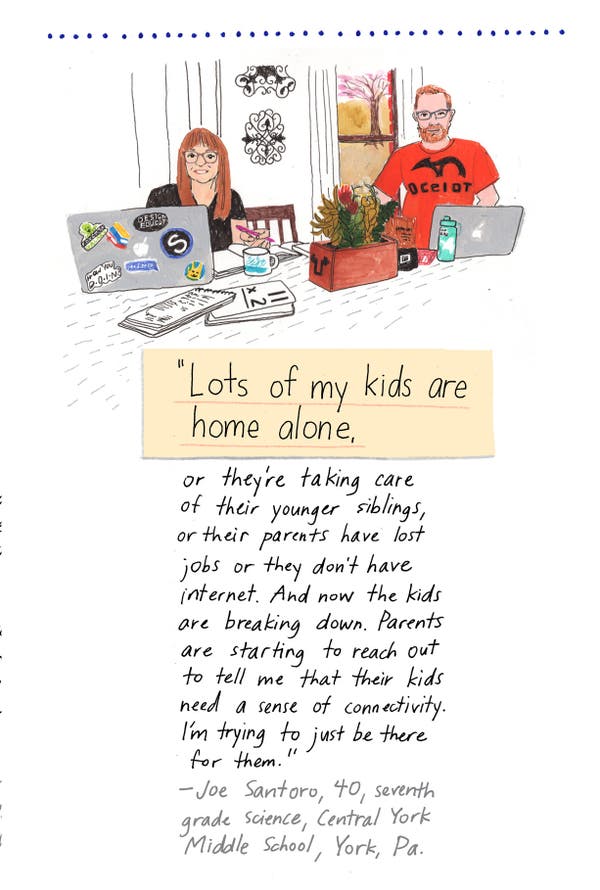 DESIGN
EDUCAT
S
OCELOT
11
x 2
"Lots of my kids are
home alone,
or they're taking care
of their younger siblings,
or their parents have lost
jobs or they don't have
internet. And now the kids
are breaking down. Parents
are starting to reach out
to tell me that their kids
need a sense of connectivity.
I'm trying to just be there
for them."
—Joe Santoro, 40, seventh
grade science, Central York
Middle School, York, Pa.